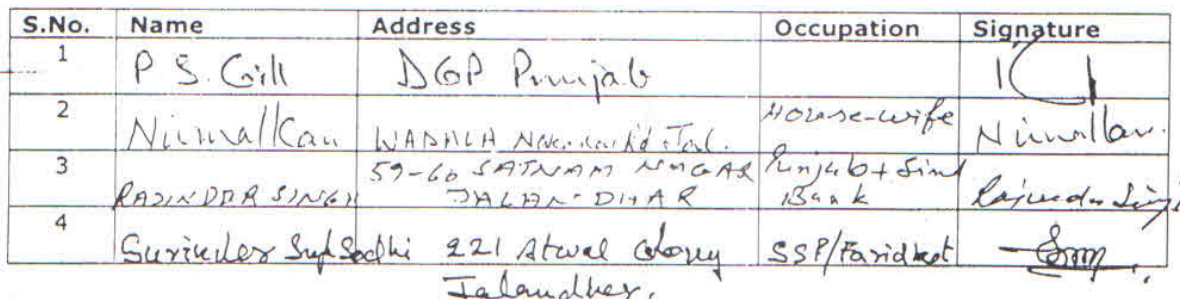 S.No. Name Address Occupation Signature
1 P S. Gill DGP Punjab
2 Nirmal Kau WADALA Jal. House-wife
3 RAJINDER SINGH 59-60 SATNAM NAGAR JALANDHAR Punjab + Sind Bank Rajinder Singh
4 Surinder Sodhi 221 Atwal Colony SSP/Faridkot
Jalandher.